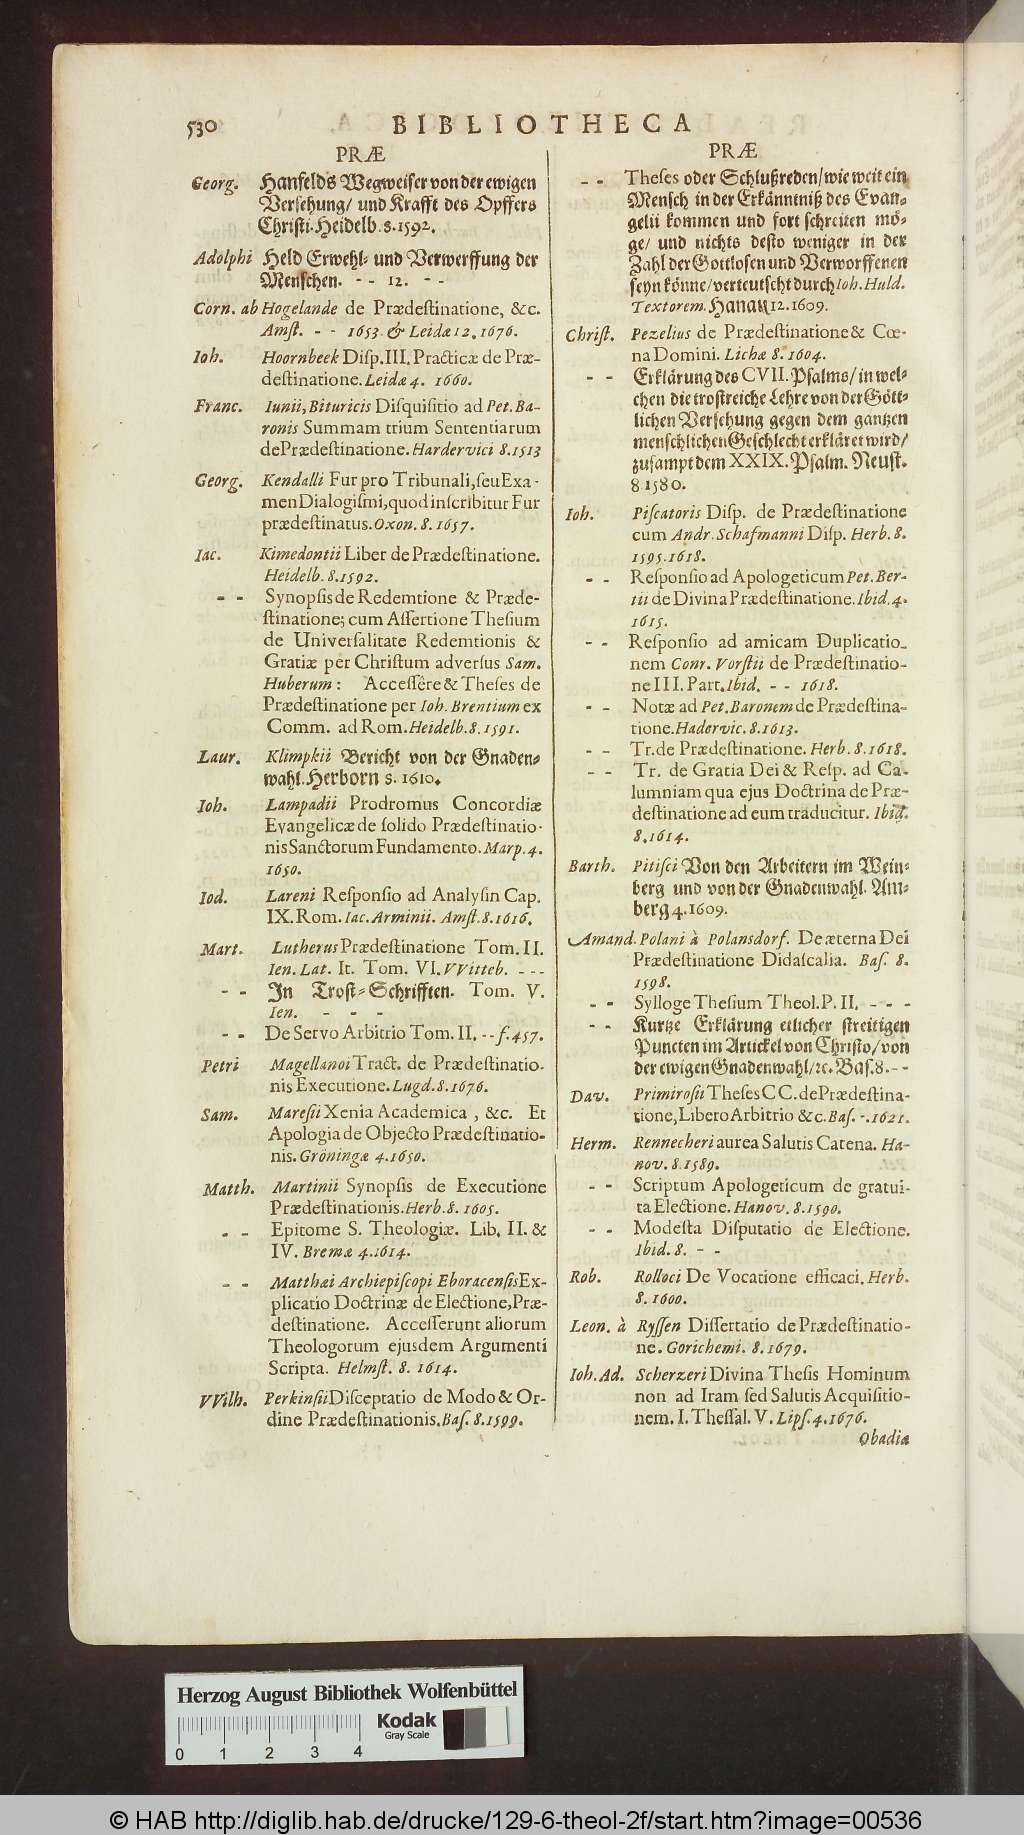 530
BIBLIOTHECA
PRÆ
Georg. Hanfelds Wegweiser von der ewigen
Versehung/ und Krafft des Opffers
Christi. Heidelb. 8. 1592.
Adolphi Held Erwehl- und Verwerffung der
Menschen. - - 12. - -
Corn. ab Hogelande de Prædeſtinatione, &c.
Amſt. - - 1653. & Leidæ 12. 1676.
Ioh. Hoornbeek Diſp. III. Practicæ de Præ-
deſtinatione. Leidæ 4. 1660.
Franc. Iunii, Bituricis Diſquiſitio ad Pet. Ba-
ronis Summam trium Sententiarum
de Prædeſtinatione. Hardervici 8. 1513
Georg. Kendalli Fur pro Tribunali, ſeu Exa-
men Dialogiſmi, quod inſcribitur Fur
prædeſtinatus. Oxon. 8. 1657.
Iac. Kimedontii Liber de Prædeſtinatione.
Heidelb. 8. 1592.
- - Synopſis de Redemtione & Præde-
ſtinatione; cum Aſſertione Theſium
de Univerſalitate Redemtionis &
Gratiæ per Chriſtum adverſus Sam.
Huberum: Acceſſêre & Theſes de
Prædeſtinatione per Ioh. Brentium ex
Comm. ad Rom. Heidelb. 8. 1591.
Laur. Klimpkii Bericht von der Gnaden-
wahl. Herborn 8. 1610.
Ioh. Lampadii Prodromus Concordiæ
Evangelicæ de ſolido Prædeſtinatio-
nis Sanctorum Fundamento. Marp. 4.
1650.
Iod. Lareni Reſponſio ad Analyſin Cap.
IX. Rom. Iac. Arminii. Amſt. 8. 1616.
Mart. Lutherus Prædeſtinatione Tom. II.
Ien. Lat. It. Tom. VI. VVitteb. - - -
- - In Trost-Schrifften. Tom. V.
Ien. - - -
- - De Servo Arbitrio Tom. II. - - f. 457.
Petri Magellanoi Tract. de Prædeſtinatio-
nis Executione. Lugd. 8. 1676.
Sam. Mareſii Xenia Academica, &c. Et
Apologia de Objecto Prædeſtinatio-
nis. Gröningæ 4. 1650.
Matth. Martinii Synopſis de Executione
Prædeſtinationis. Herb. 8. 1605.
- - Epitome S. Theologiæ. Lib. II. &
IV. Bremæ 4. 1614.
- - Matthæi Archiepiſcopi Eboracenſis Ex-
plicatio Doctrinæ de Electione, Præ-
deſtinatione. Acceſſerunt aliorum
Theologorum ejusdem Argumenti
Scripta. Helmſt. 8. 1614.
VVilh. Perkinſii Diſceptatio de Modo & Or-
dine Prædeſtinationis. Baſ. 8. 1599.
PRÆ
- - Theſes oder Schlußreden/ wie weit ein
Mensch in der Erkänntniß des Evan-
gelii kommen und fort schreiten mö-
ge/ und nichts desto weniger in der
Zahl der Gottlosen und Verworffenen
seyn könne/ verteutscht durch Ioh. Huld.
Textorem. Hanau 12. 1609.
Chriſt. Pezelius de Prædeſtinatione & Cœ-
na Domini. Lichæ 8. 1604.
- - Erklärung des CVII. Psalms/ in wel-
chen die trostreiche Lehre von der Gött-
lichen Versehung gegen dem gantzen
menschlichen Geschlecht erkläret wird/
zusampt dem XXIX. Psalm. Neust.
8 1580.
Ioh. Piſcatoris Diſp. de Prædeſtinatione
cum Andr. Schafmanni Diſp. Herb. 8.
1595. 1618.
- - Reſponſio ad Apologeticum Pet. Ber-
tii de Divina Prædeſtinatione. Ibid. 4.
1615.
- - Reſponſio ad amicam Duplicatio-
nem Conr. Vorſtii de Prædeſtinatio-
ne III. Part. Ibid. - - 1618.
- - Notæ ad Pet. Baronem de Prædeſtina-
tione. Hadervic. 8. 1613.
- - Tr. de Prædeſtinatione. Herb. 8. 1618.
- - Tr. de Gratia Dei & Reſp. ad Ca-
lumniam qua ejus Doctrina de Præ-
deſtinatione ad eum traducitur. Ibid.
8. 1614.
Barth. Pitiſci Von den Arbeitern im Wein-
berg und von der Gnadenwahl. Am-
berg 4. 1609.
Amand. Polani à Polansdorf. De æterna Dei
Prædeſtinatione Didaſcalia. Baſ. 8.
1598.
- - Sylloge Theſium Theol. P. II. - - -
- - Kurtze Erklärung etlicher streitigen
Puncten im Artickel von Christo/ von
der ewigen Gnadenwahl/ ꝛc. Bas. 8. - -
Dav. Primiroſii Theſes CC. de Prædeſtina-
tione, Libero Arbitrio & c. Baſ. -. 1621.
Herm. Rennecheri aurea Salutis Catena. Ha-
nov. 8. 1589.
- - Scriptum Apologeticum de gratui-
ta Electione. Hanov. 8. 1590.
- - Modeſta Diſputatio de Electione.
Ibid. 8. - -
Rob. Rolloci De Vocatione efficaci. Herb.
8. 1600.
Leon. à Ryſſen Diſſertatio de Prædeſtinatio-
ne. Gorichemi. 8. 1679.
Ioh. Ad. Scherzeri Divina Theſis Hominum
non ad Iram ſed Salutis Acquiſitio-
nem. I. Theſſal. V. Lipſ. 4. 1676.
Obadiæ
Herzog August Bibliothek Wolfenbüttel
Kodak
Gray Scale
0 1 2 3 4
© HAB http://diglib.hab.de/drucke/129-6-theol-2f/start.htm?image=00536